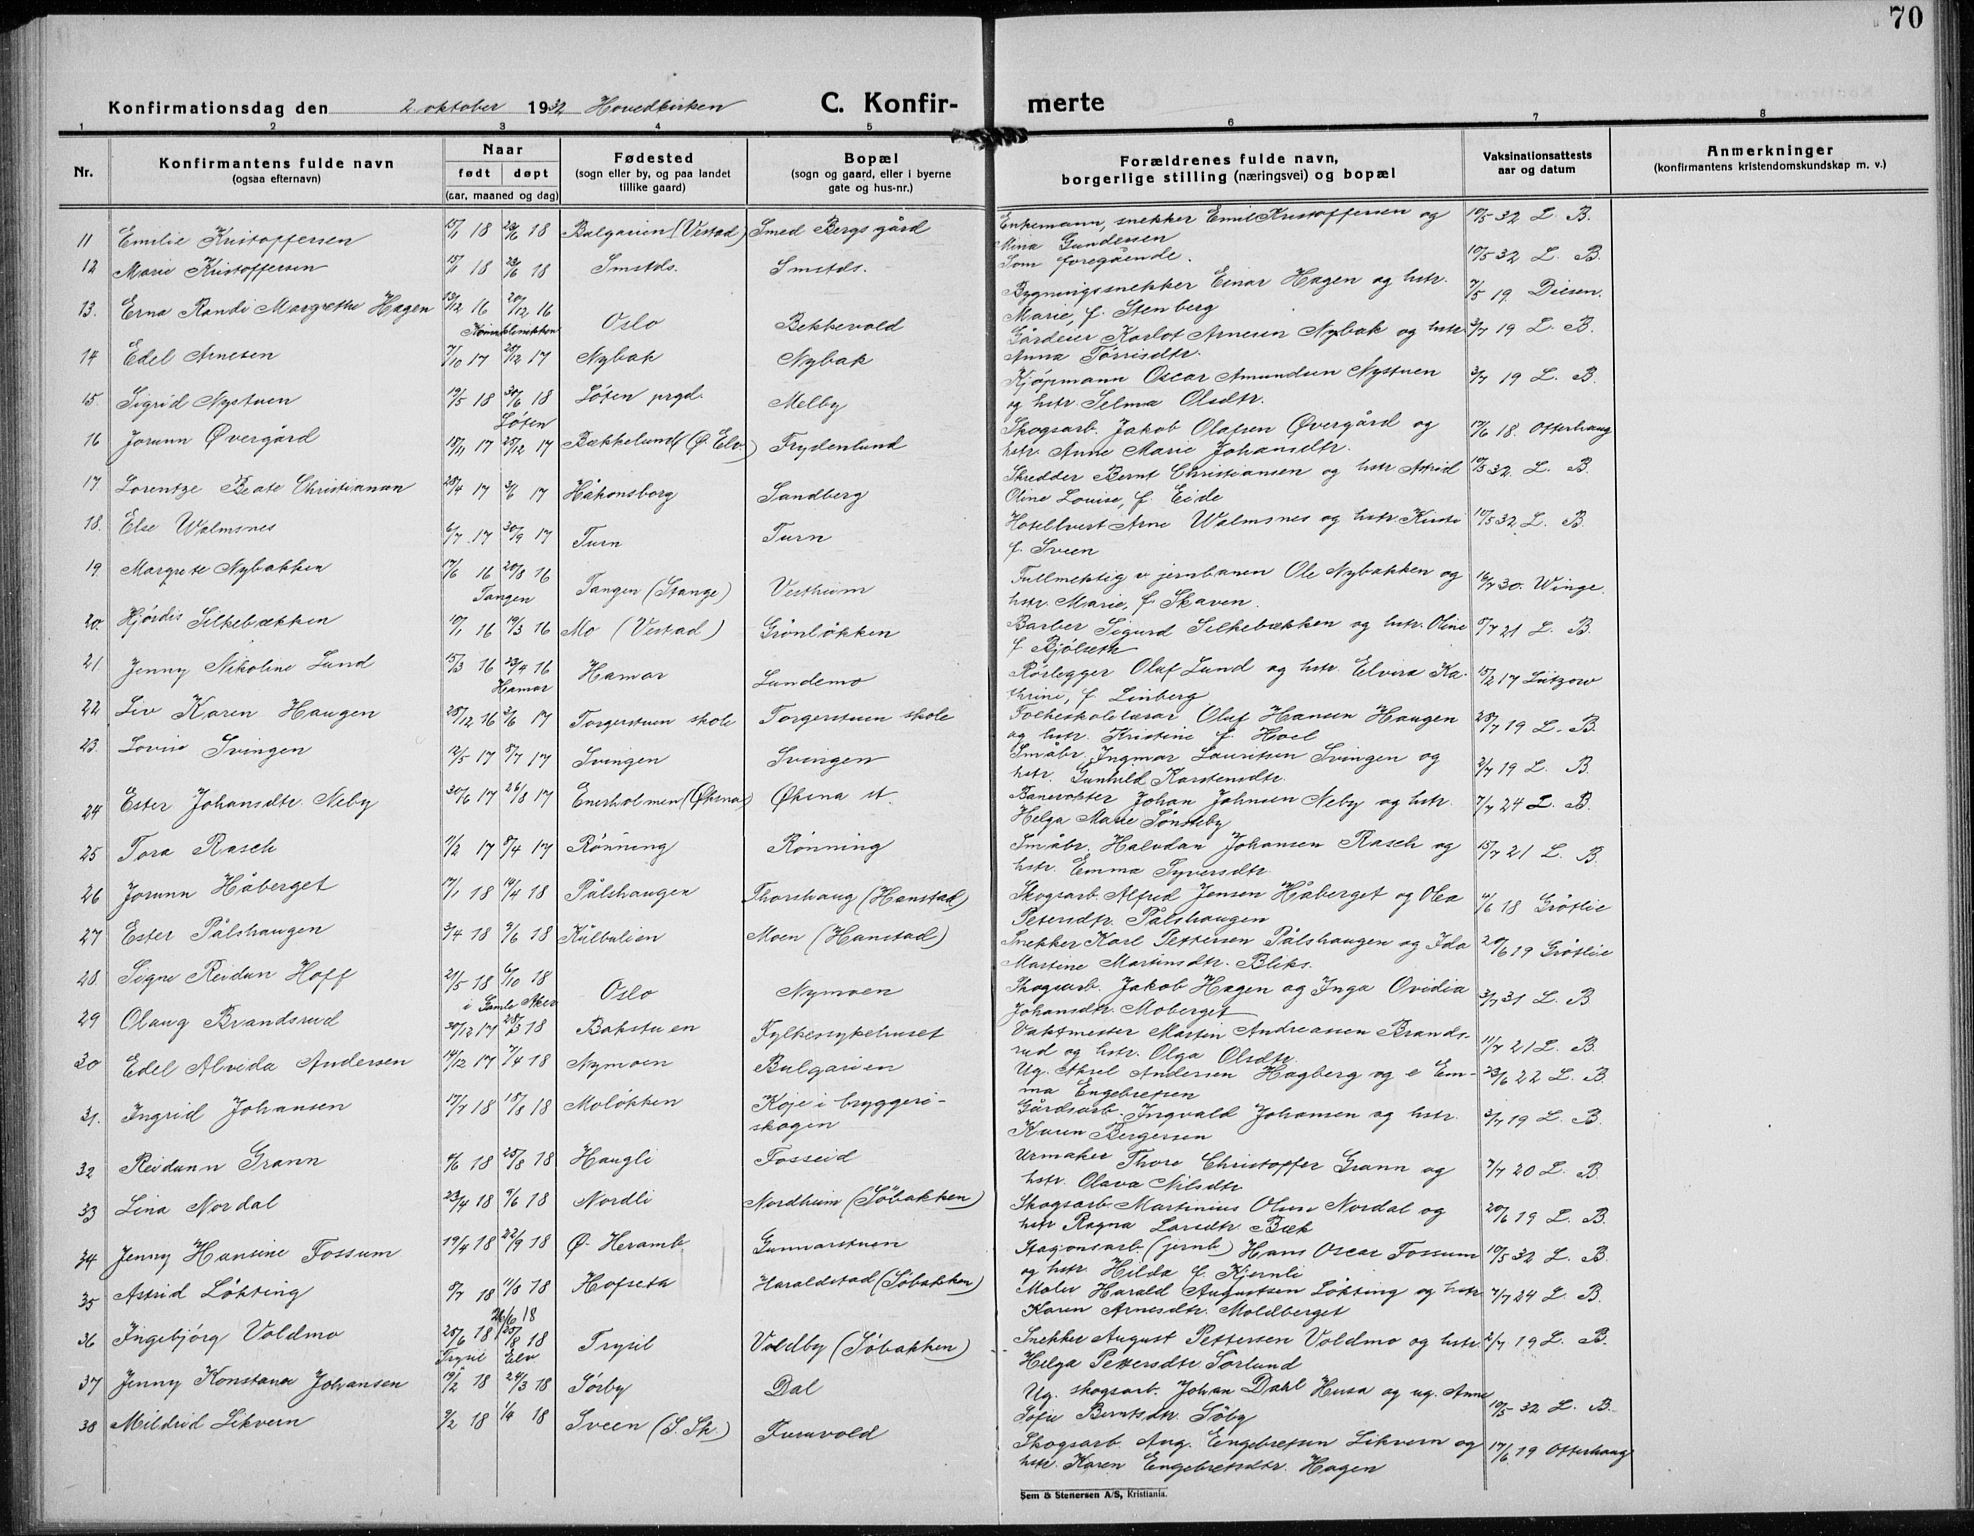 70
Konfirmationsdag den 2 oktober 1932 Hovedkirken C. Konfir- merte
1 2 3 4 5 6 7 8
Nr. Konfirmantens fulde navn (ogsaa efternavn) Naar født døpt (aar, maaned og dag) Fødested (sogn eller by, og paa landet tillike gaard) Bopæl (sogn og gaard, eller i byerne gate og hus-nr.) Forældrenes fulde navn, borgerlige stilling (næringsvei) og bopæl Vaksinationsattests aar og datum Anmerkninger (konfirmantens kristendomskundskap m. v.)
11 Emilie Kristoffersen 15/1 18 23/6 18 Bulgarien (Vestad) Smed Bergs gård Enkemann, snekker Emil Kristoffersen og 10/5 32 L. B.
Mina Gundersen
12 Marie Kristoffersen 15/1 18 23/6 18 Smstds. Smstds. Som foregående. 10/5 32 L. B.
13. Erna Randi Margrethe Hagen 13/12 16 20/12 16 Oslo Bekkevold Bygningssnekker Einar Hagen og hstr. 7/5 19 Diesen.
Kvinneklinikken Marie, f. Stenberg
14 Edel Arnesen 7/10 17 28/12 17 Nybak Nybak Gårdeier Karlot Arnesen Nybak og hstr. 3/7 19 L. B.
Anna Torrisdtr.
15. Sigrid Nystuen 19/5 18 30/6 18 Løten prgd. Melby Kjøpmann Oscar Amundsen Nystuen 3/7 19 L. B.
Løten og hstr. Selma Olsdtr.
16 Jorunn Øvergård 18/11 17 25/12 17 Bækkelund (Ø. Elv.) Frydenlund Skogsarb. Jakob Olafsen Øvergård og 17/6 18. Otterhaug
hstr. Anne Marie Johansdtr.
17 Lorentze Beate Christiansen 28/4 17 3/6 17 Håkonsborg Sandberg Skredder Bernt Christiansen og hstr. Astrid 10/5 32 L. B.
Oline Louise, f. Eide
18. Else Walmsnes 6/7 17 30/9 17 Turn Turn Hotellvert Arne Walmsnes og hstr. 10/5 32 L. B.
f. Sveen
19. Margrete Nybakken 17/6 16 20/8 16 Tangen (Stange) Vestheim Fullmektig v. jernbanen Ole Nybakken og 16/7 30. Winge.
Tangen hstr. Marie, f. Skaven.
20. Hjørdis Silkebækken 10/1 16 19/3 16 Mo (Vestad) Grønløkken Barber Sigurd Silkebækken og hstr. Oline 8/7 21 L. B.
f. Bjølseth
21 Jenny Nikoline Lund 15/3 16 23/4 16 Hamar Lundemo Rørlegger Oluf Lund og hstr. Elvira Ka- 15/2 17 Lützow
Hamar thrine, f. Linberg
22 Liv Karen Haugen 28/12 16 3/6 17 Torgerstuen skole Torgerstuen skole Folkeskolelærer Oluf Hansen Haugen 28/7 19 L. B.
og hstr. Kristine f. Hoel
23. Lovise Svingen 12/5 17 8/7 17 Svingen Svingen Småbr. Ingmar Lauritsen Svingen og 2/7 19 L. B.
hstr. Gunhild Karstensdtr.
24 Ester Johansdtr. Neby 30/6 17 26/8 17 Enerholmen (Øksna) Øksna st. Banevokter Johan Johnsen Neby og hstr. 7/7 24 L. B.
Helga Marie Sønsteby
25 Tora Rasch 11/2 17 8/4 17 Rønning Rønning Småbr. Halvdan Johansen Rasch og 15/7 21 L. B.
hstr. Emma Syversdtr.
26 Jorunn Håberget 17/1 18 14/4 18 Pålshaugen Thorshaug (Hanstad) Skogsarb. Alfred Jensen Håberget og Olea 11/6 18 Grøtlie
Petersdtr. Pålshaugen
27 Ester Pålshaugen 3/4 18 9/6 18 Kulbulien Moen (Hanstad) Snekker Karl Pettersen Pålshaugen og Ida 20/6 19 Grøtlie
Martine Martinsdtr. Bliks.
28. Signe Reidun Hoff 21/5 18 6/10 18 Oslo Nymoen Skogsarb. Jakob Hagen og Inga Ovidia 3/7 31 L. B
i Gamle Aker Johansdtr. Moberget
29 Olaug Brandsrud 30/12 17 28/3 18 Bakstuen Fylkessykehuset Vaktmester Martin Andreassen Brands- 11/7 21 L. B.
rud og hstr. Olga Olsdtr.
30 Edel Alvida Andersen 14/12 17 7/4 18 Nymoen Bulgarien Ug. Aksel Andersen Hagberg og e Em- 23/6 22 L. B.
ma Engebretsen
31. Ingrid Johansen 17/7 18 18/8 18 Moløkken Køje i bryggeri- Gårdsarb. Ingvald Johansen og hstr. 3/7 19 L. B.
skogen Karen Bergersen
32 Reidunn Grann 4/6 18 25/8 18 Haugli Fosseid Urmaker Thore Christoffer Grann og 7/7 20 L. B.
hstr. Olava Nilsdtr.
33 Lina Nordal 23/4 18 9/6 18 Nordli Nordheim (Søbakken) Skogsarb. Martinius Olsen Nordal og 20/6 19 L. B.
hstr. Ragna Larsdtr. Bæk
34 Jenny Hansine Fossum 19/4 18 22/9 18 Ø. Heramb. Gunnarstuen Stasjonsarb. (jernb.) Hans Oscar Fossum 10/5 32 L. B.
og hstr. Hilda f. Kjernli
35 Astrid Løkting 8/7 18 11/8 18 Hofseta Haraldstad (Søbakken) Maler Harald Augustsen Løkting og hstr. 7/7 24 L. B.
Karen Arnesdtr. Moldberget
26/6 18
36 Ingebjørg Voldmo 25/6 18 25/8 18 Trysil Voldby (Søbakken) Snekker August Pettersen Voldmo og hstr. 2/7 19 L. B.
Trysil Elv Helga Pettersdtr. Sørlund
37 Jenny Konstanse Johansen 19/2 18 24/3 18 Sørby Dal Ug. skogsarb. Johan Dahl Husa og ug. Anne 10/5 32 L. B.
Sofie Berntsdtr. Søby
38 Mildrid Likvern 9/2 18 1/4 18 Sveen (S. Sk.) Furuvold Skogsarb. Aug. Engebretsen Likvern og 17/6 19 Otterhaug
hstr. Karen Engebretsdtr. Hagen
Sem & Stenersen A/S, Kristiania.